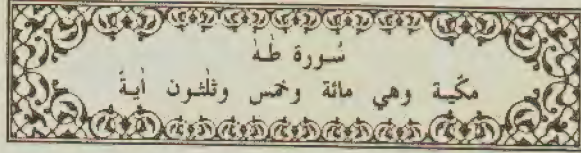 سُورة طٰهٰ
مكّيـة وهي مائة وخمس وثلٰثـون اٰيةً